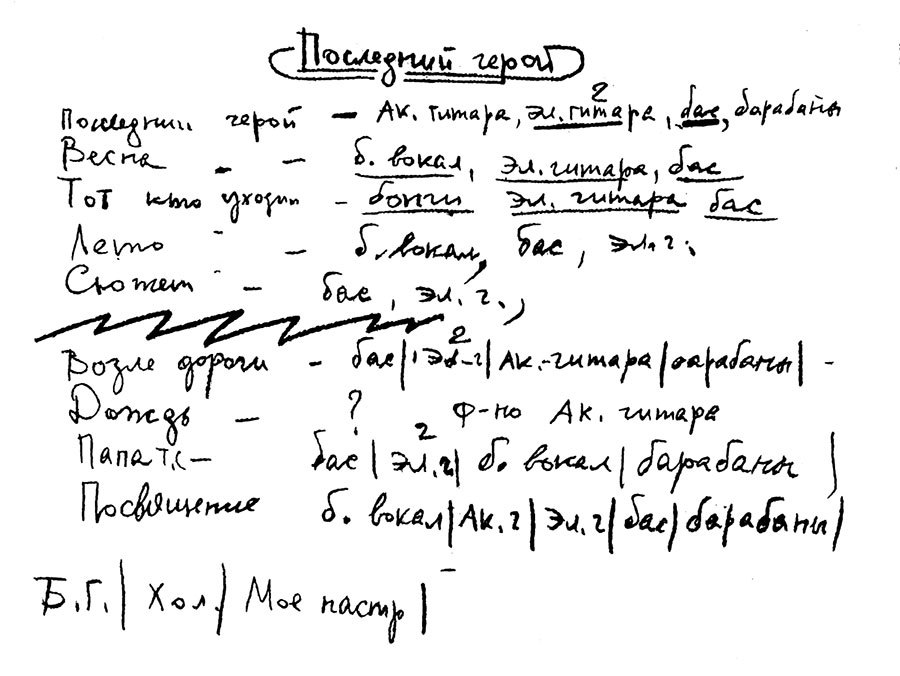 Последний герой
Последний герой – Ак. гитара, эл. гитара 2, бас, барабаны
Весна – б. вокал, эл. гитара, бас
Тот кто уходит – бонги эл. гитара бас
Лето – б. вокал, бас, эл. г.
Сюжет – бас, эл. г.,
Возле дороги – бас | эл-г 2 | Ак.-гитара | барабаны | -
Дождь – ? Ф-но Ак. гитара
Папа т.с – бас | эл. г 2 | б. вокал | барабаны |
Посвящение б. вокал | Ак. г | Эл. г | бас | барабаны |
Б.Г. | Хол. | Мое настр |